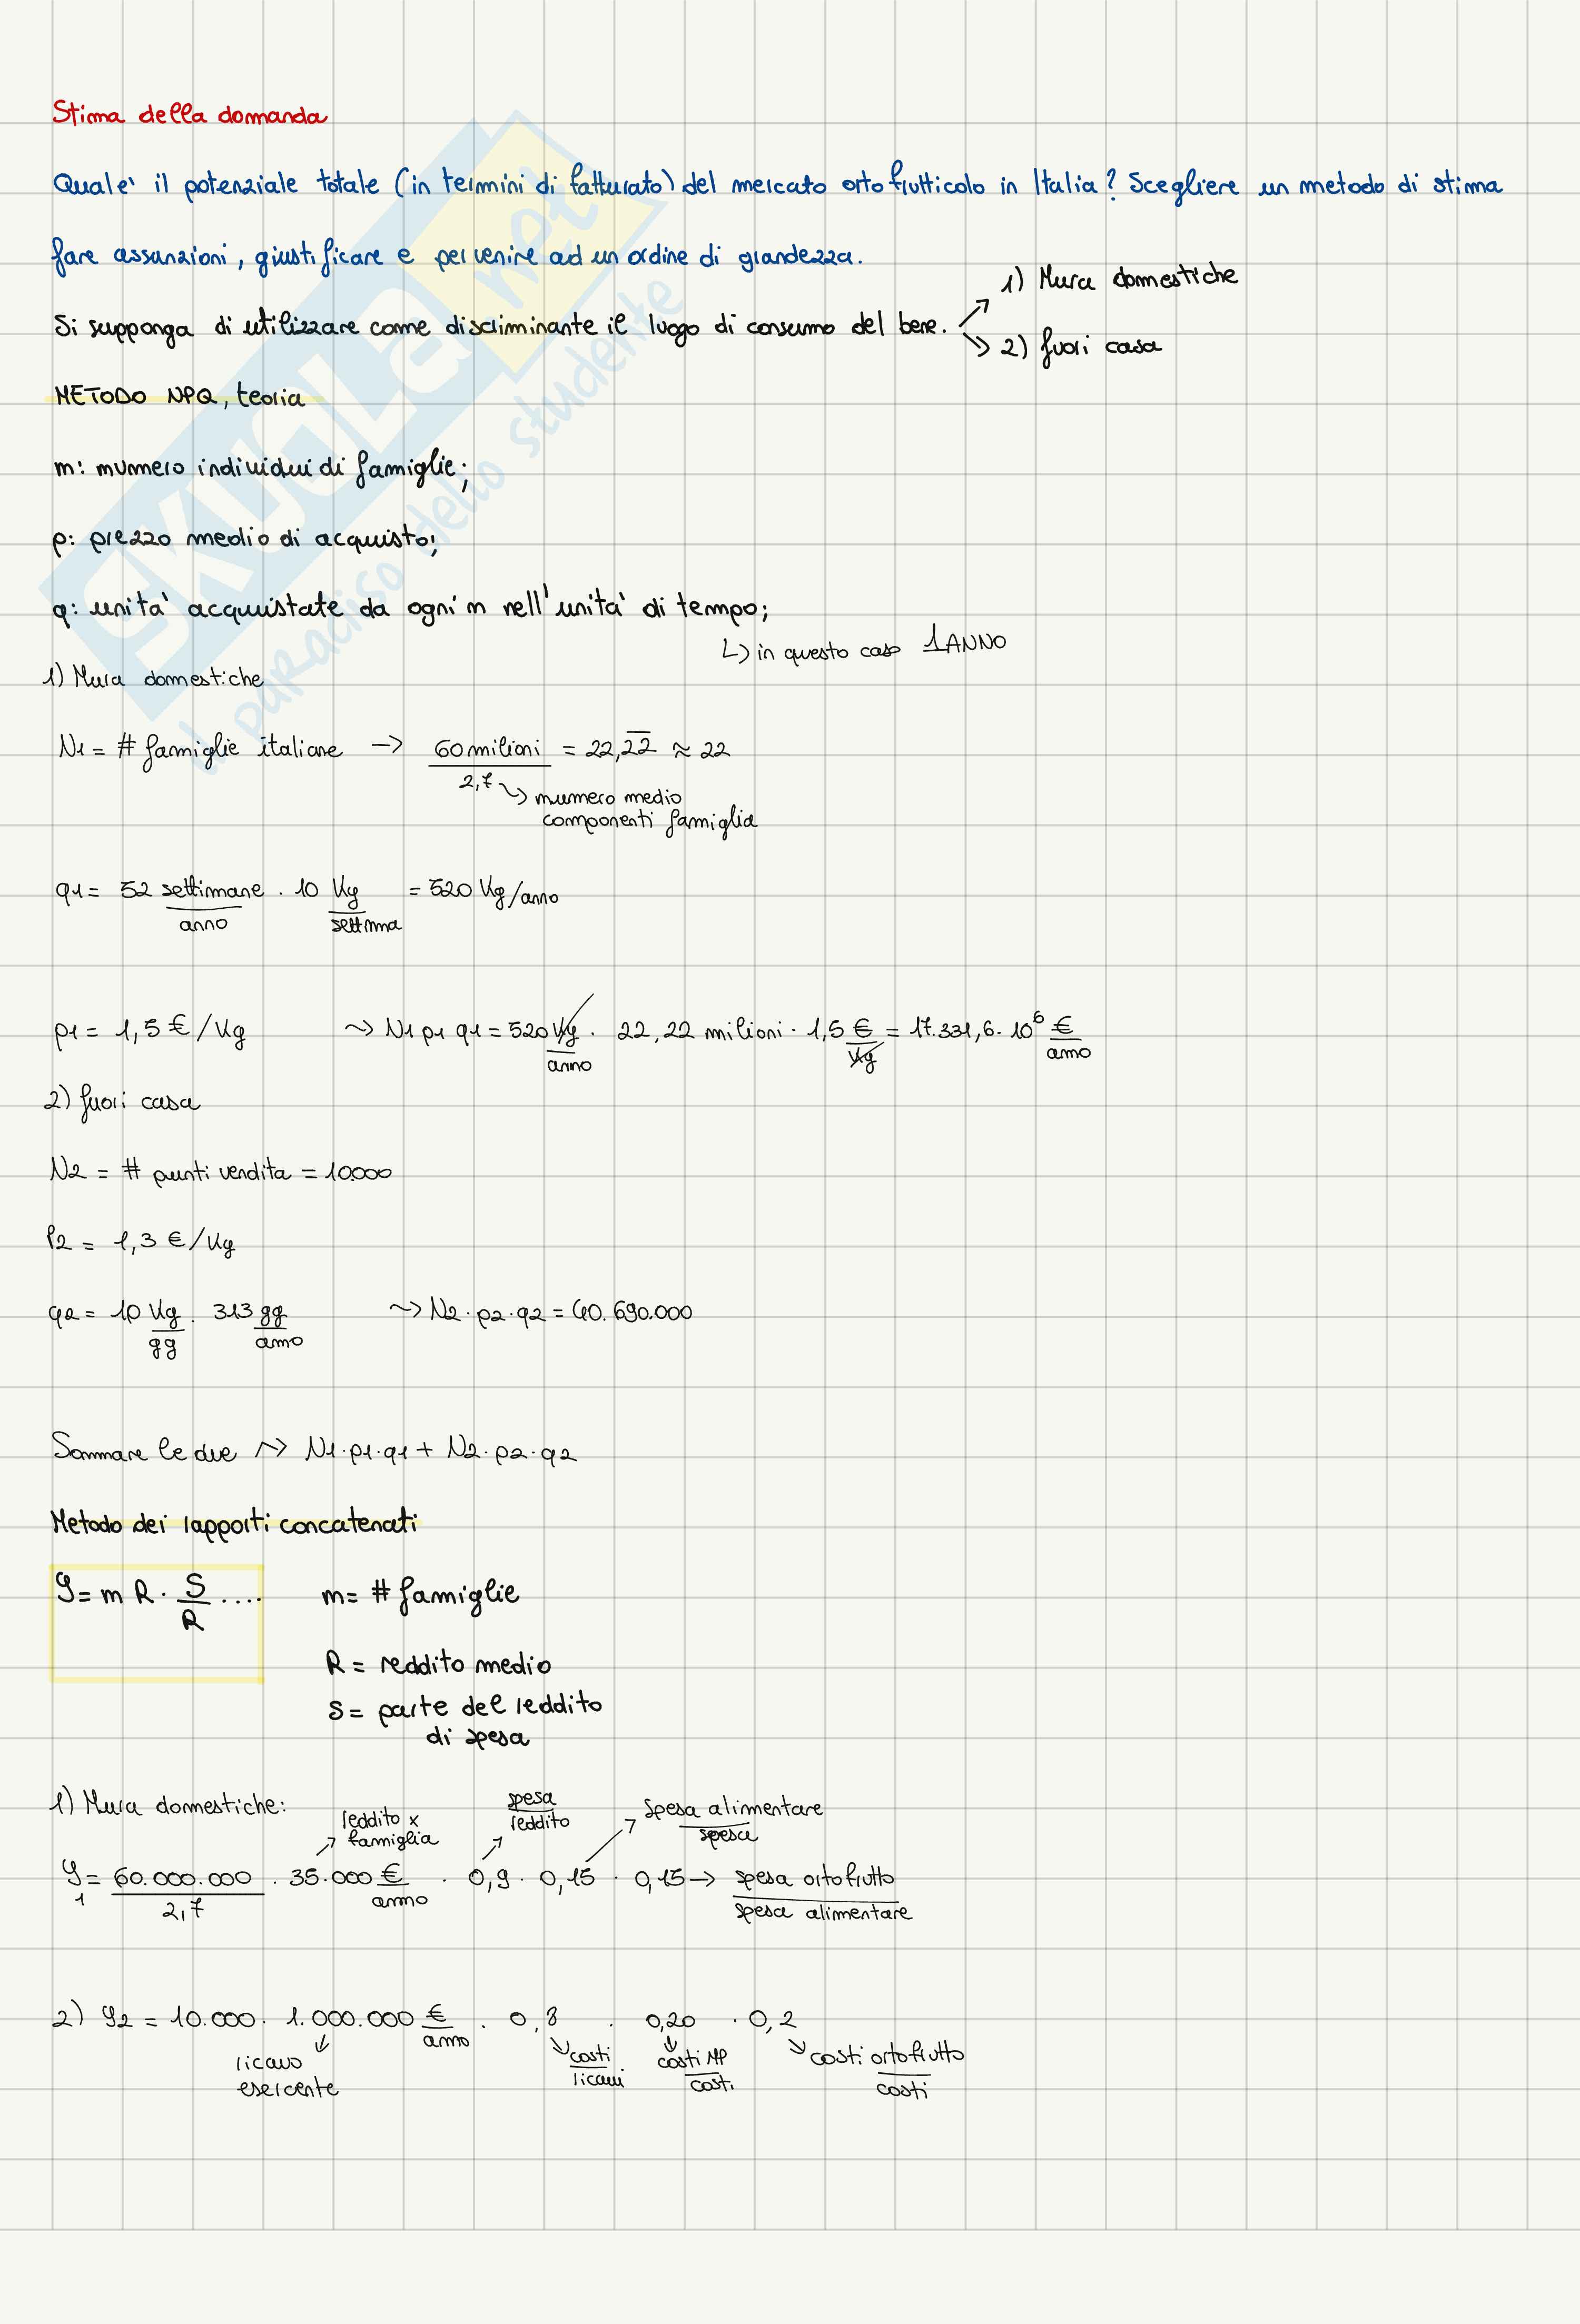 Stima della domanda
Qual e' il potenziale totale (in termini di fatturato) del mercato ortofrutticolo in Italia? Scegliere un metodo di stima
fare assunzioni, giustificare e pervenire ad un ordine di grandezza.
Si supponga di utilizzare come discriminante il luogo di consumo del bene. ↗ 1) Mura domestiche
↘ 2) fuori casa
METODO NPQ, teoria
n: numero individui di famiglie;
p: prezzo medio di acquisto;
q: unità acquistate da ogni n nell'unità di tempo;
↳ in questo caso 1 ANNO
1) Mura domestiche
N1 = # famiglie italiane → 60 milioni / 2,7 = 22,22 ≈ 22
↳ numero medio
componenti famiglia
q1 = 52 settimane/anno · 10 Kg/settmna = 520 Kg/anno
p1 = 1,5 €/Kg ⇝ N1 p1 q1 = 520 Kg/anno · 22,22 milioni · 1,5 €/Kg = 17.331,6 · 10⁶ €/anno
2) fuori casa
N2 = # punti vendita = 10.000
P2 = 1,3 €/Kg
q2 = 10 Kg/gg · 313 gg/anno ⇝ N2 · p2 · q2 = 40.690.000
Sommare le due ⇝ N1·p1·q1 + N2·p2·q2
Metodo dei rapporti concatenati
Y = n R · S/R .... n = # famiglie
R = reddito medio
S = parte del reddito
di spesa
1) Mura domestiche:
reddito x famiglia
spesa/reddito
spesa alimentare/spesa
Y1 = 60.000.000/2,7 · 35.000 €/anno · 0,9 · 0,15 · 0,15 → spesa ortofrutto/spesa alimentare
2) Y2 = 10.000 · 1.000.000 €/anno · 0,8 · 0,20 · 0,2
ricavo esercente
costi/ricavi
costi MP/costi
costi ortofrutto/costi
SKUOLA.net
il paradiso dello studente